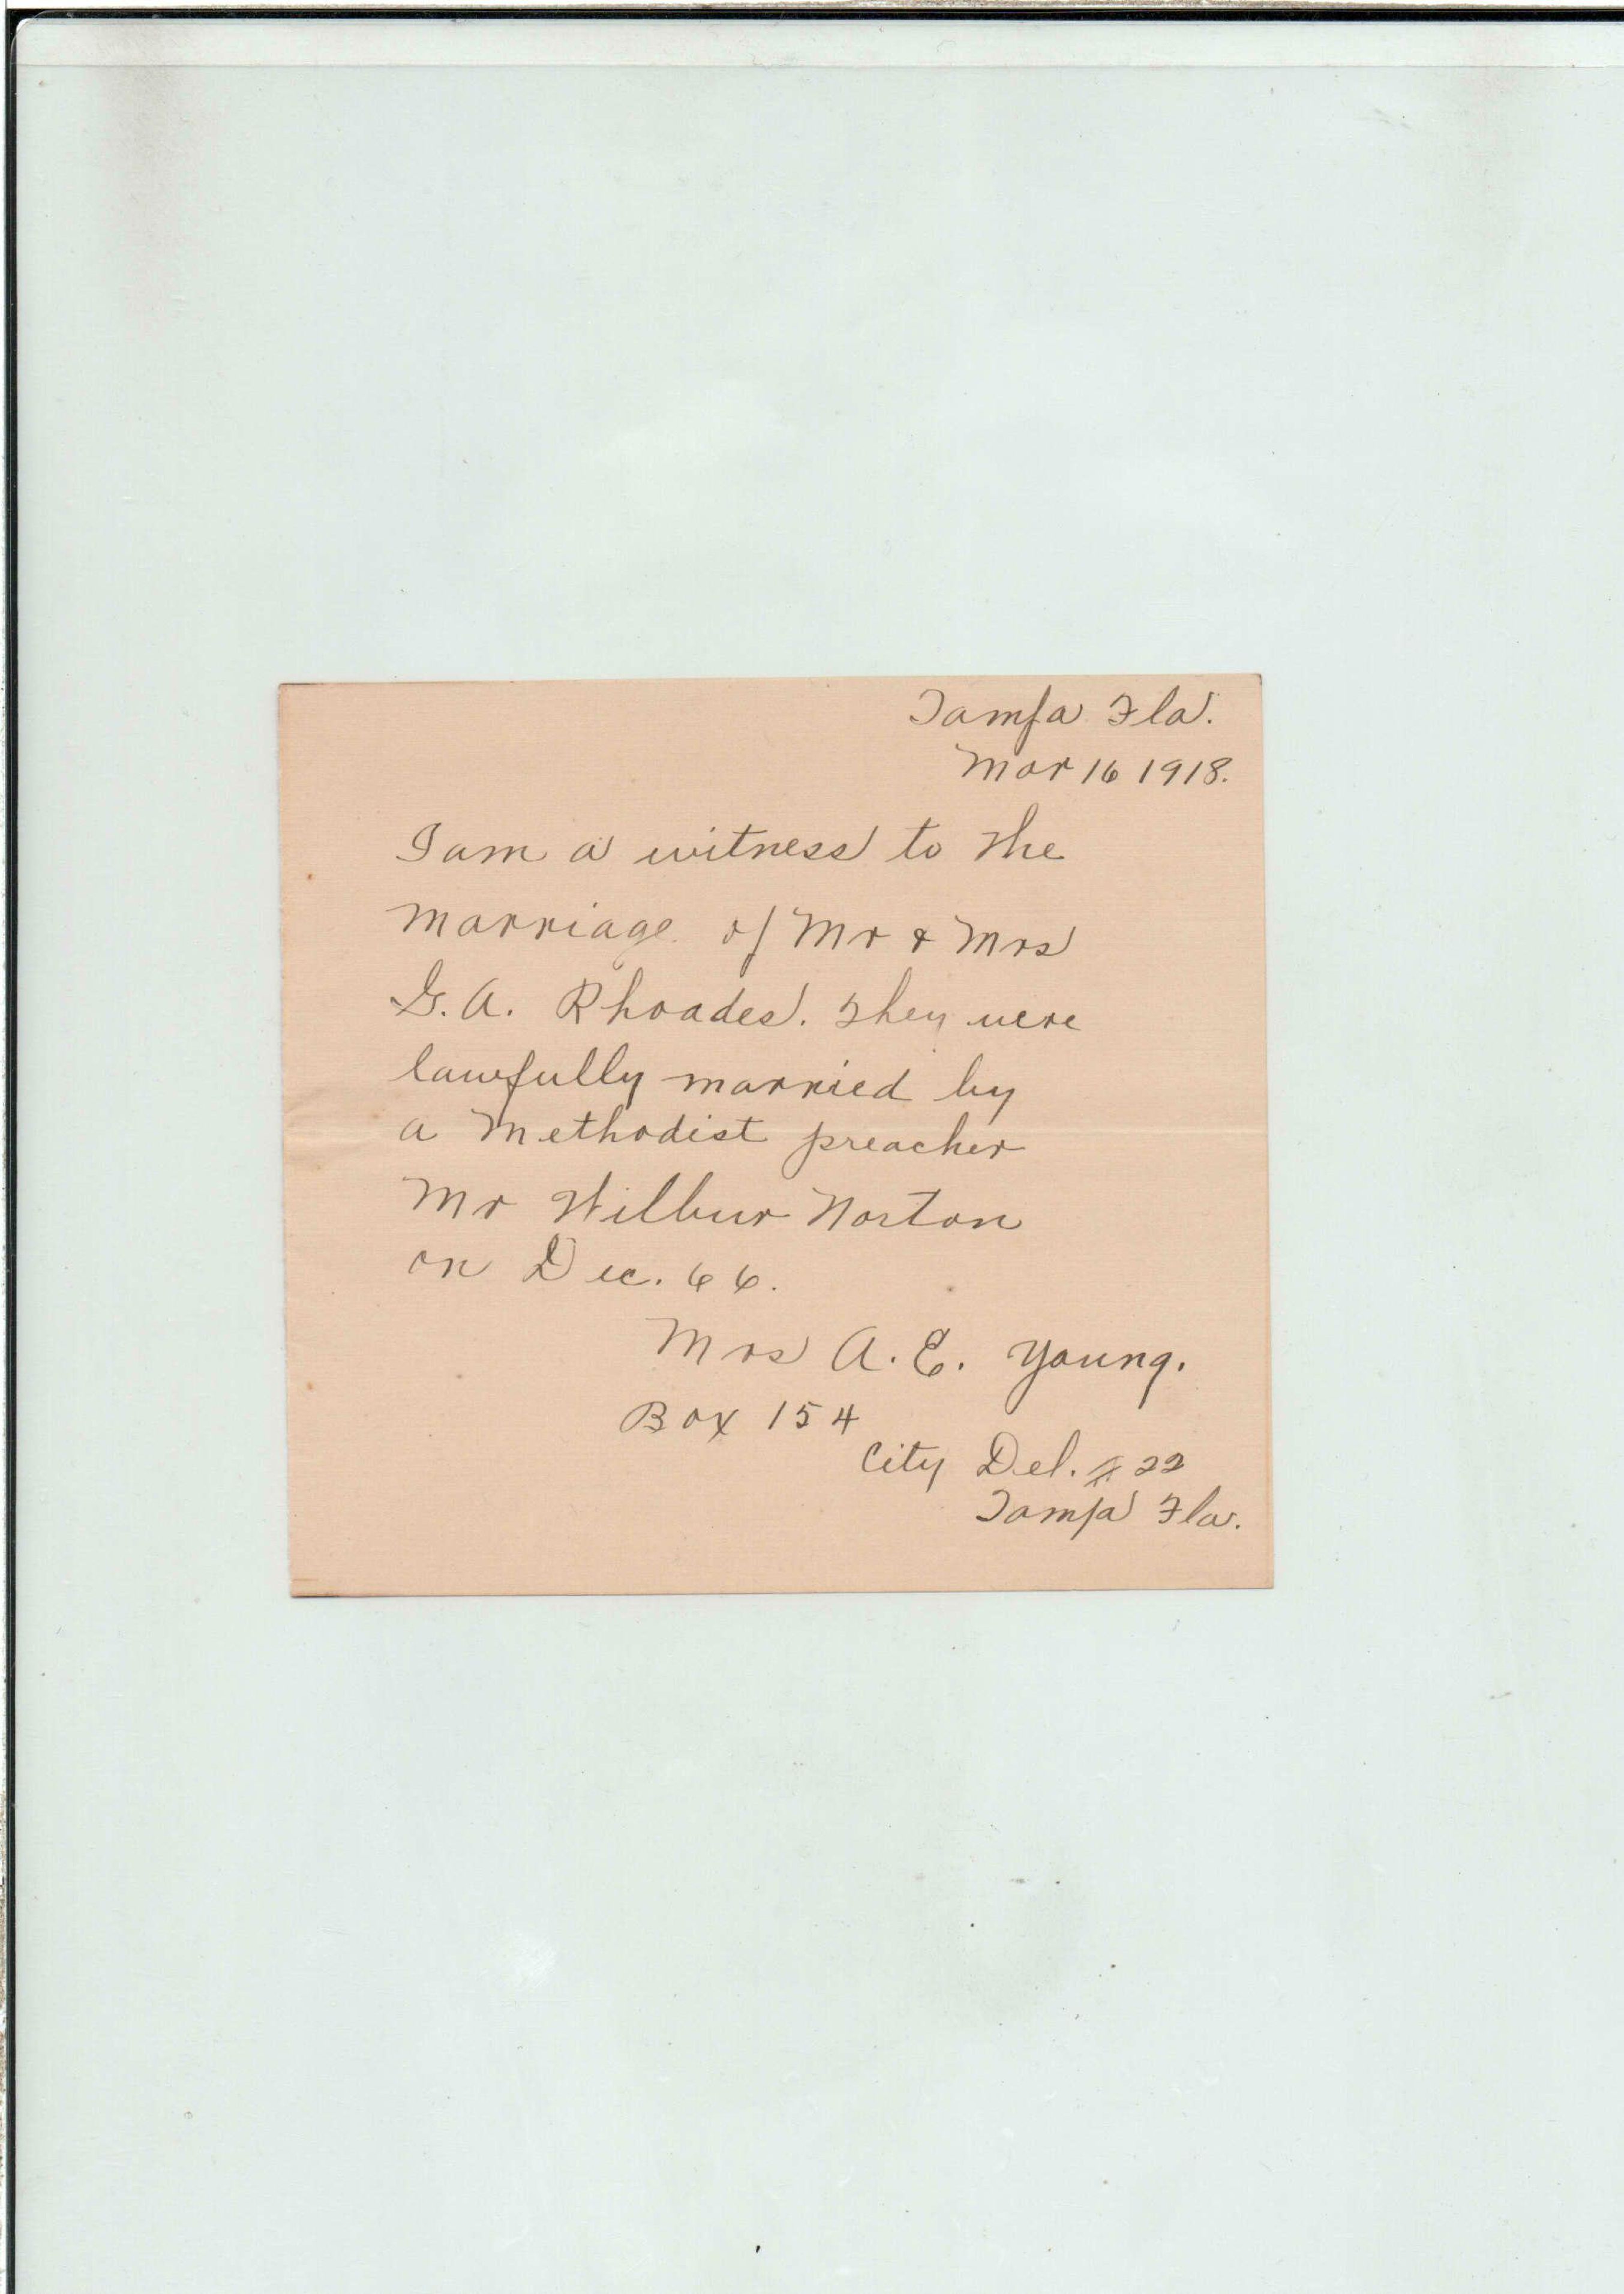 Tampa Fla.
Mar 16 1918.
I am a witness to the
marriage of Mr & Mrs
G. A. Rhoades. They were
lawfully married by
a Methodist preacher
Mr Wilbur Norton
on Dec. 66.
Mrs A. E. Young.
Box 154
City Del. # 22
Tampa Fla.